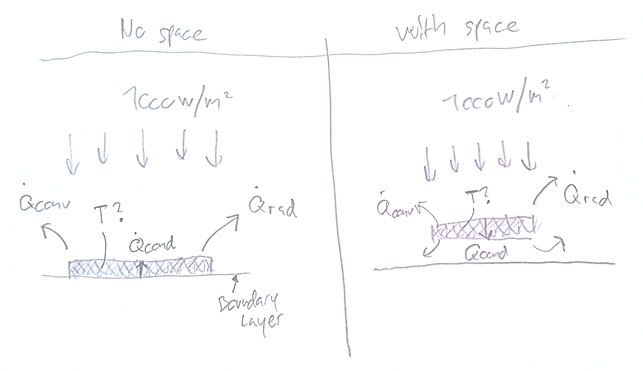 No space
1000W/m²
Q̇conv
T?
Q̇cond
Q̇rad
Boundary
Layer
with space
1000W/m²
Q̇conv
T?
Q̇rad
Q̇cond